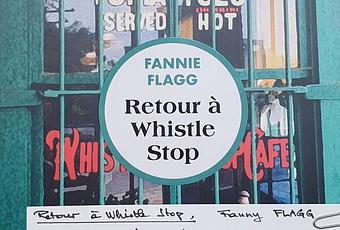 SERVED HOT
FANNIE
FLAGG
Retour à
Whistle
Stop
Retour à Whistle Stop, Fanny FLAGG